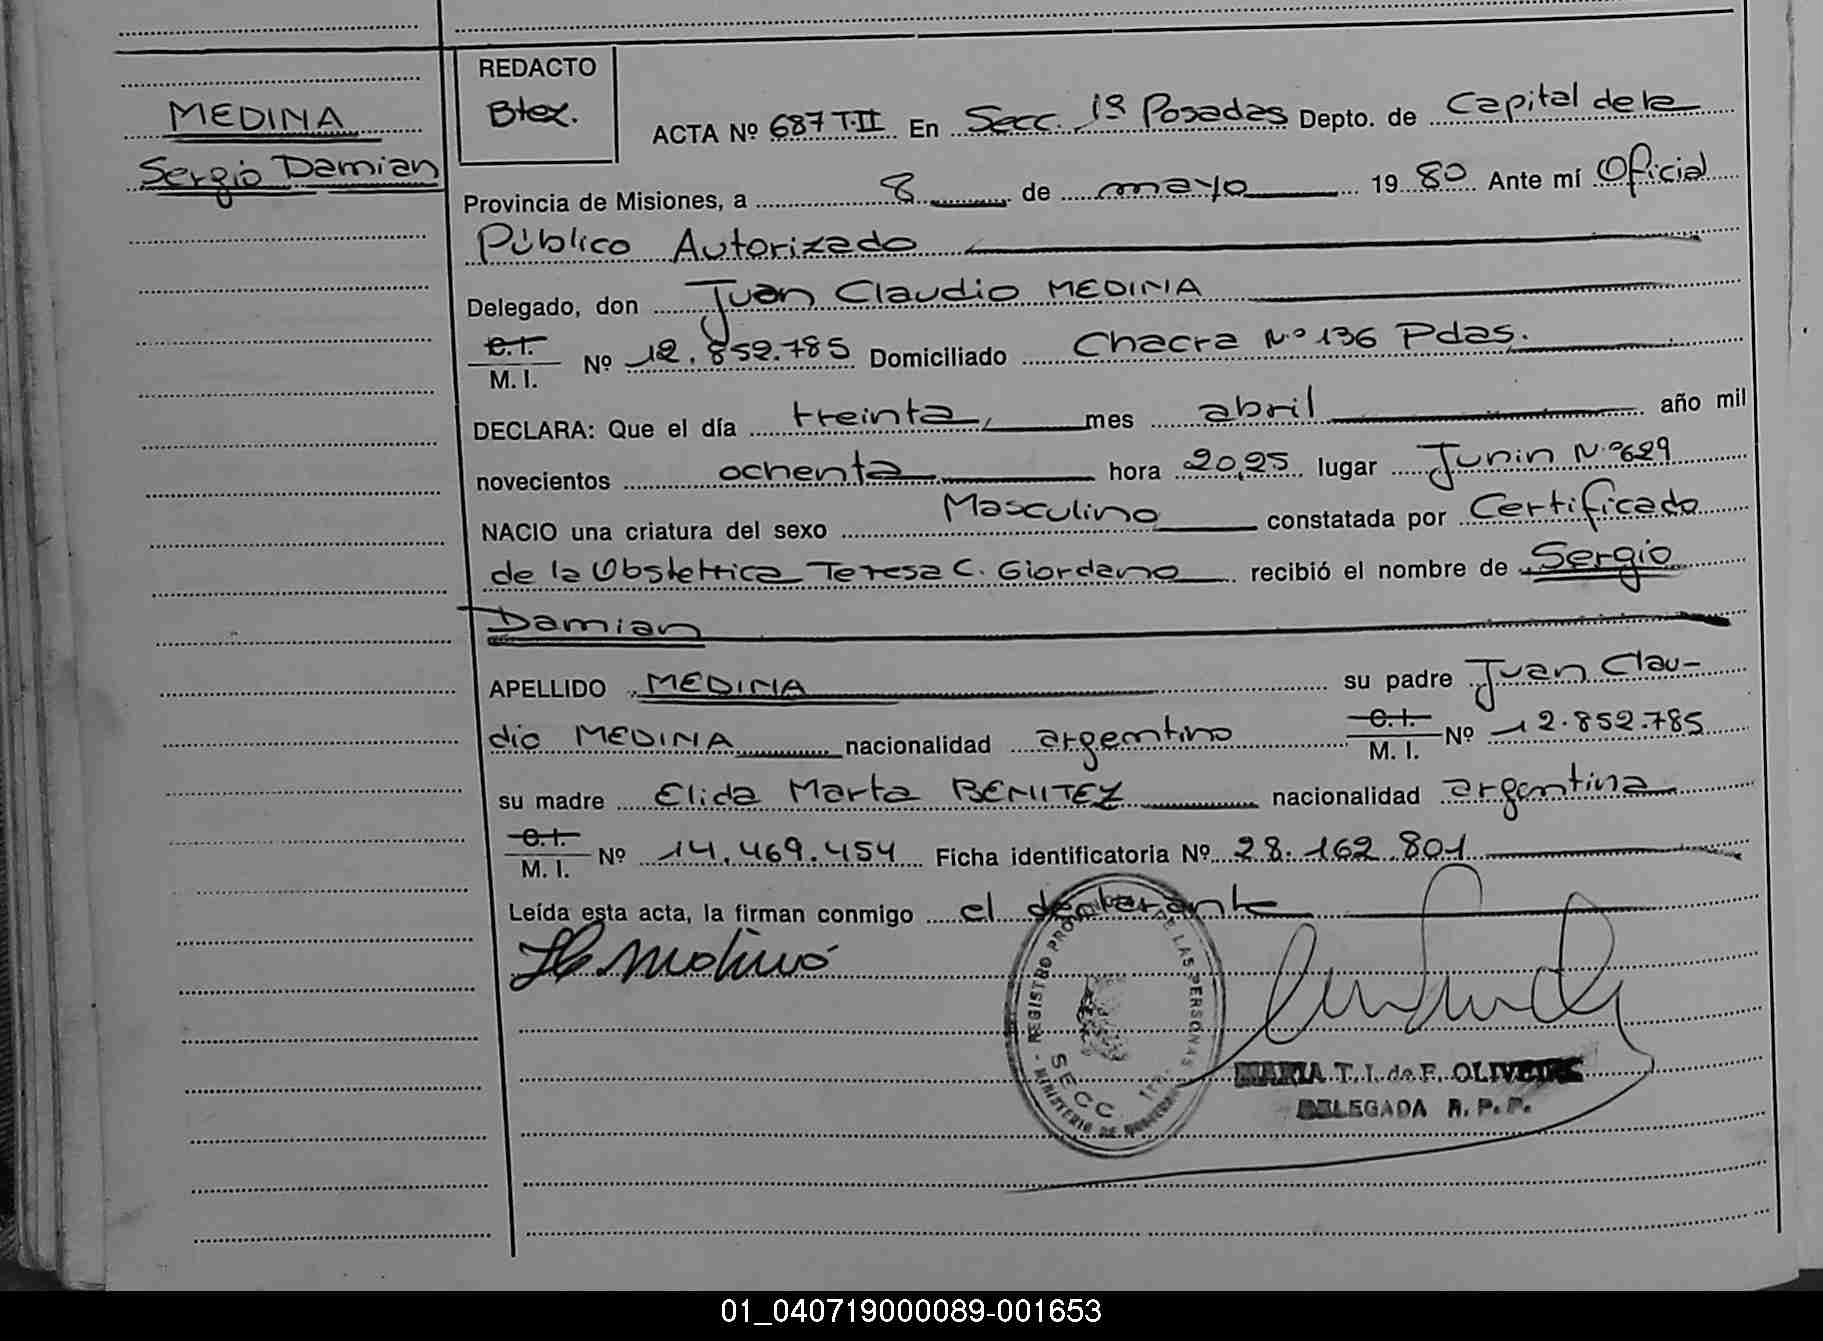 MEDINA
Sergio Damian
REDACTO
Btez.
ACTA Nº 687 T.II En Secc. 1ª Posadas Depto. de Capital de la
Provincia de Misiones, a 8 de mayo 1980 Ante mí Oficial
Público Autorizado
Delegado, don Juan Claudio MEDINA
C.I.
M. I. Nº 12.852.785 Domiciliado Chacra Nº 136 Pdas.
DECLARA: Que el día treinta, mes abril año mil
novecientos ochenta hora 20,25 lugar Junin Nº 629
NACIO una criatura del sexo Masculino constatada por Certificado
de la Obstettica Teresa C. Giordano recibió el nombre de Sergio
Damian
APELLIDO MEDINA su padre Juan Clau-
dio MEDINA nacionalidad argentino C.I.
M. I. Nº 12.852.785
su madre Elida Marta BENITEZ nacionalidad argentina
C.I.
M. I. Nº 14.469.454 Ficha identificatoria Nº 28.162.801
Leída esta acta, la firman conmigo el declarante
REGISTRO DE LAS PERSONAS
SECC. 1ª
MINISTERIO DE
MARIA T. I. de F. OLIVEIRA
DELEGADA R. P. P.
01_040719000089-001653